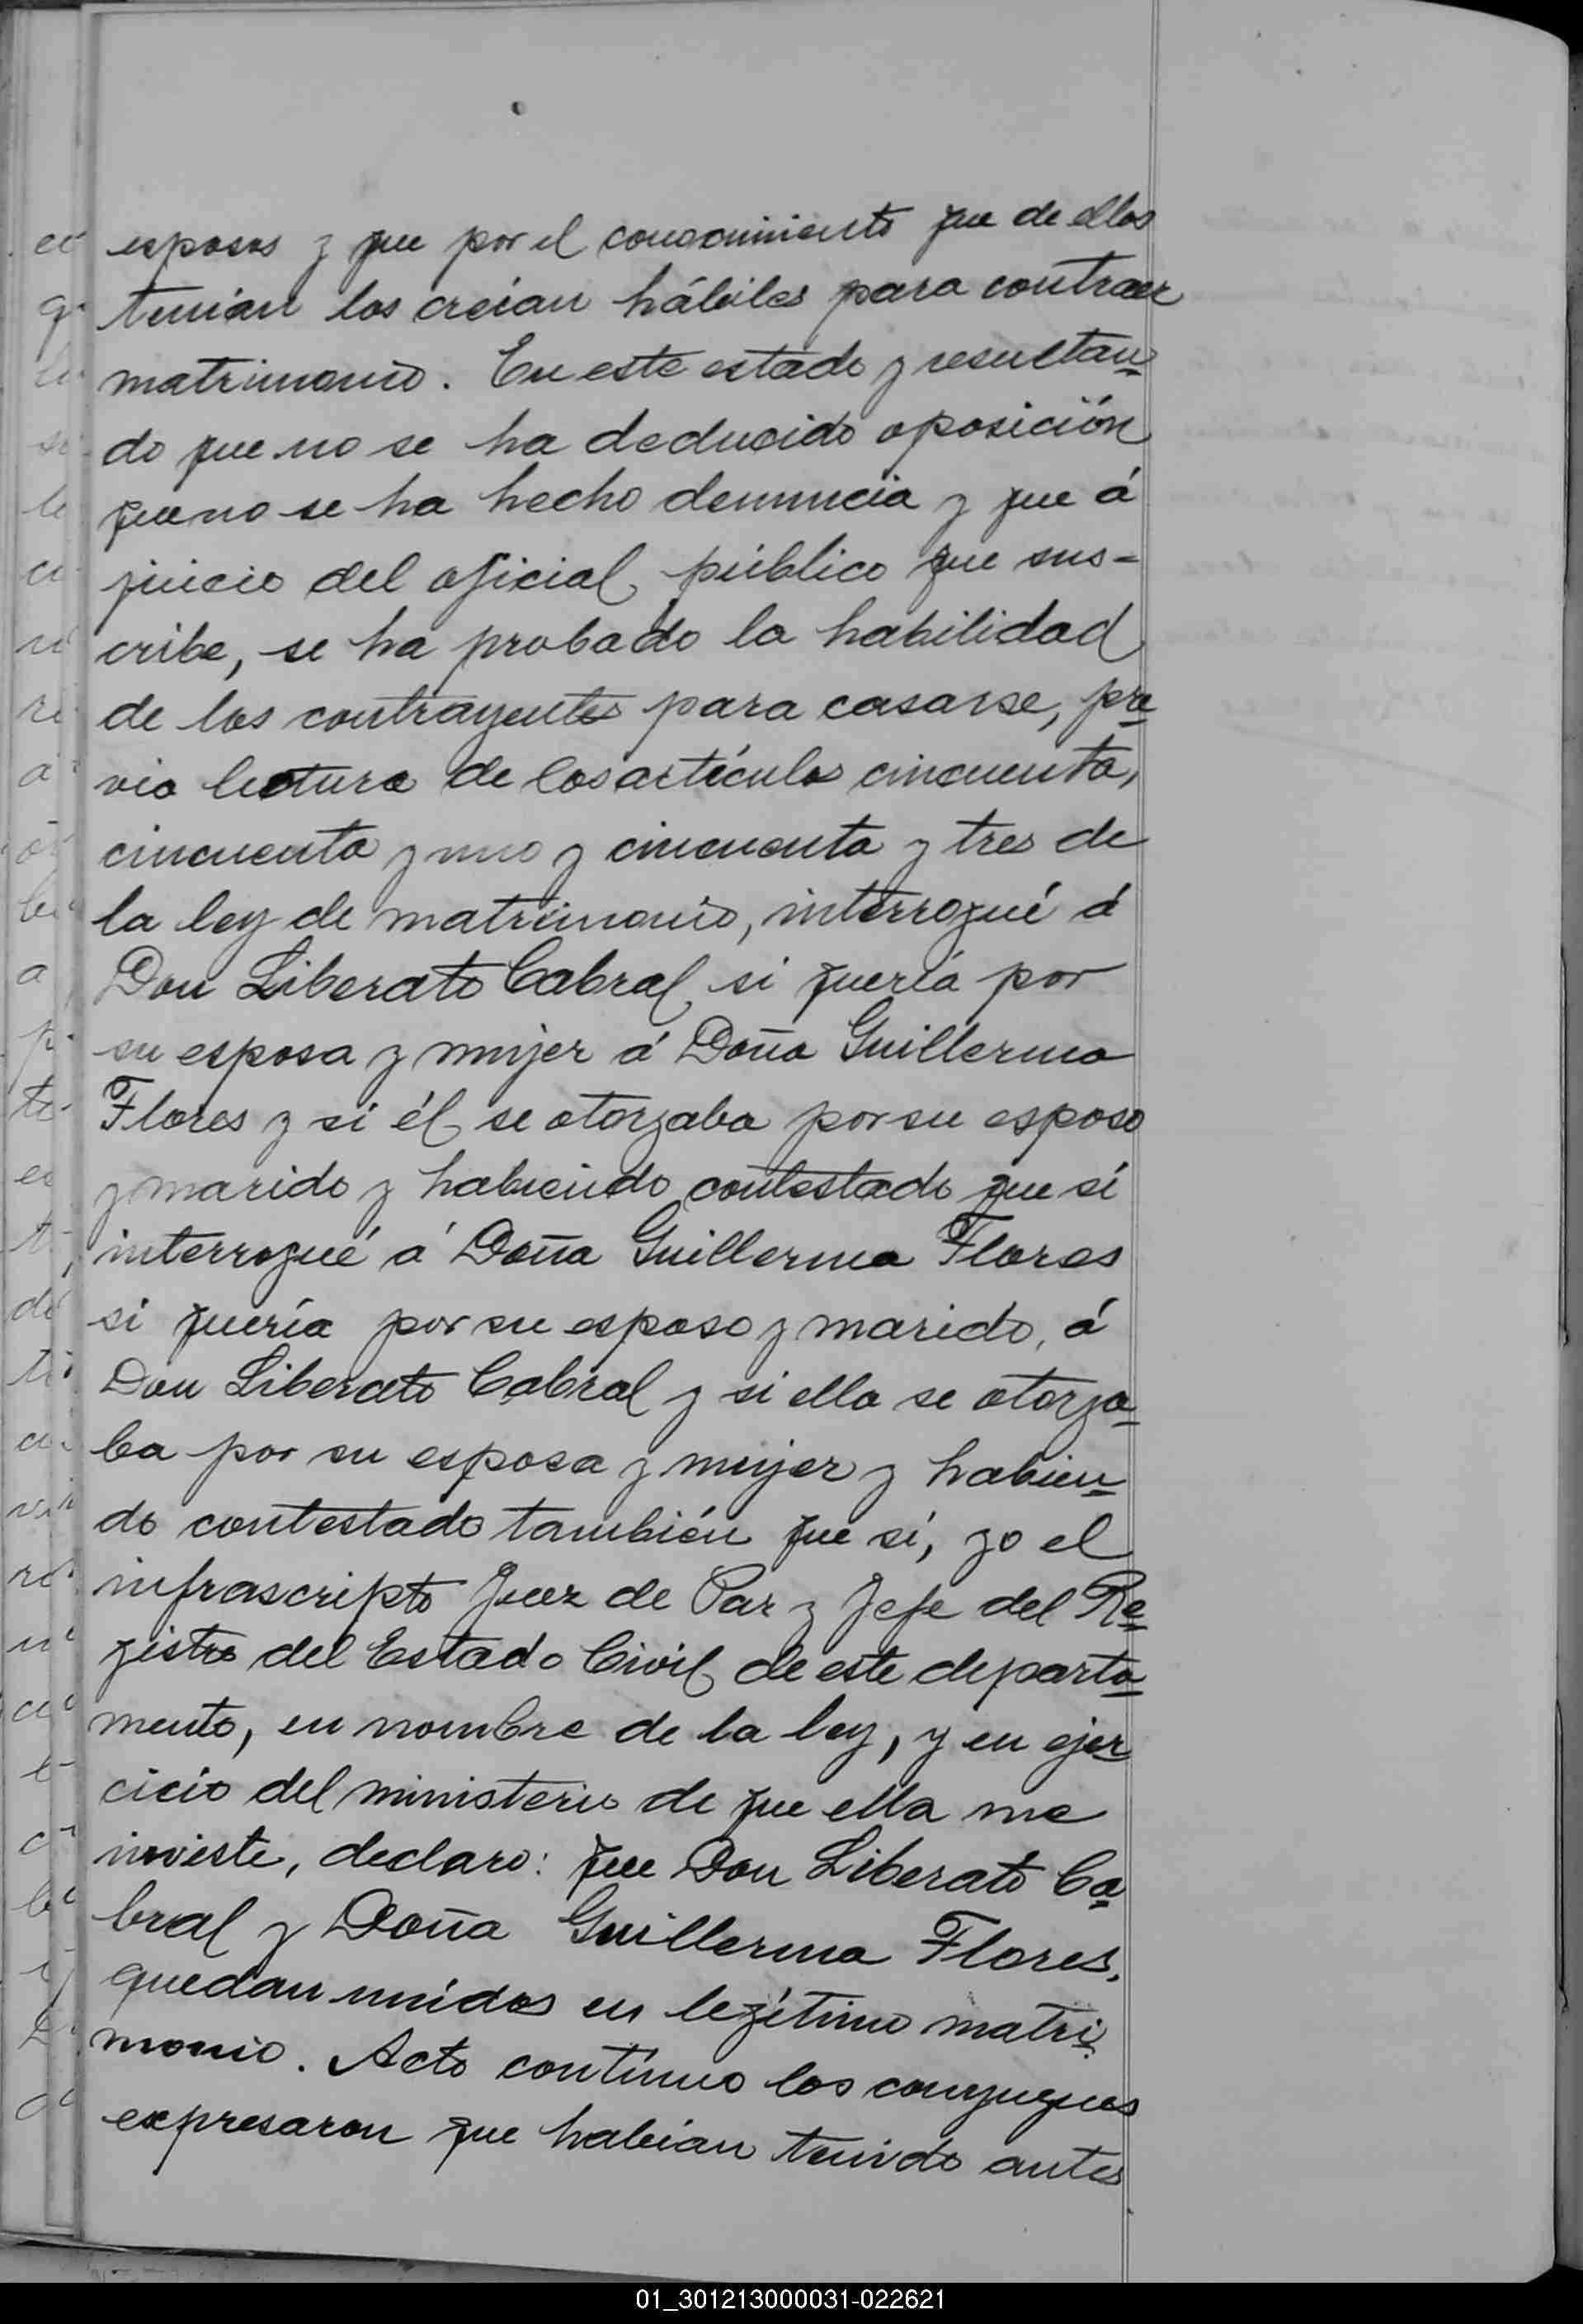 esposos y que por el conocimiento que de ellos
tenían los creían hábiles para contraer
matrimonio. En este estado y resultan-
do que no se ha deducido oposición
que no se ha hecho denuncia y que á
juicio del oficial público que sus-
cribe, se ha probado la habilidad
de los contrayentes para casarse, pre-
via lectura de los artículos cincuenta,
cincuenta y uno y cincuenta y tres de
la ley de matrimonio, interrogué á
Don Liberato Cabral si quería por
su esposa y mujer á Doña Guillerma
Flores y si él se otorgaba por su esposo
y marido y habiendo contestado que sí
interrogué á Doña Guillerma Flores
si quería por su esposo y marido, á
Don Liberato Cabral y si ella se otorga-
ba por su esposa y mujer y habien-
do contestado también que sí, yo el
infrascripto Juez de Paz y Jefe del Re-
gistro del Estado Civil de este departa-
mento, en nombre de la ley, y en ejer-
cicio del ministerio de que ella me
inviste, declaro: que Don Liberato Ca-
bral y Doña Guillerma Flores,
quedan unidos en legítimo matri-
monio. Acto contínuo los conyugues
expresaron que habían tenido antes
01_301213000031-022621